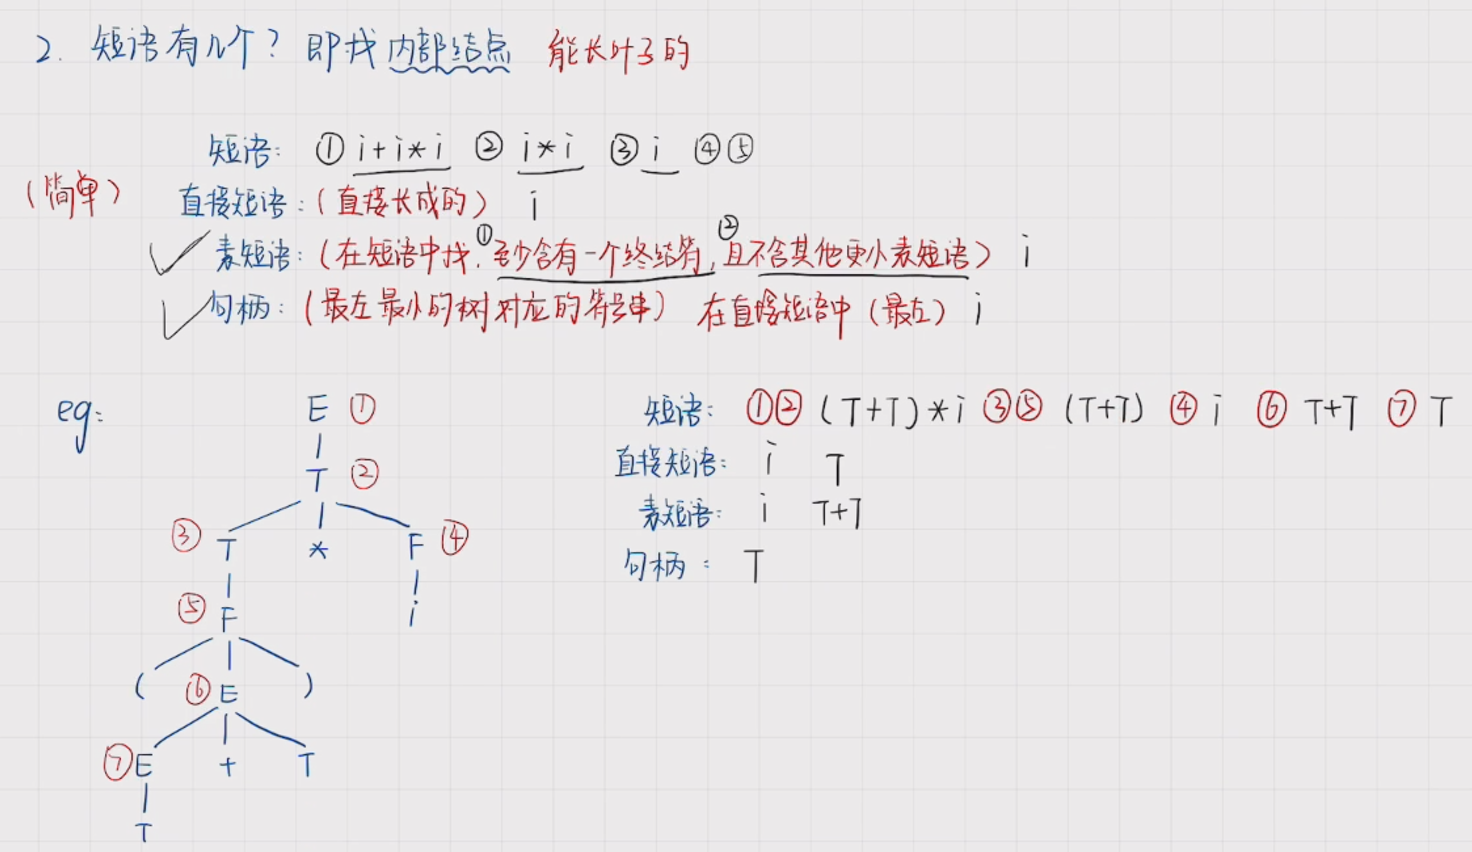 2. 短语有几个？即找内部结点 能长叶子的
短语: ① i+i*i ② i*i ③ i ④⑤
(简单)
直接短语:(直接长成的) i
素短语:(在短语中找,①至少含有一个终结符,②且不含其他更小素短语) i
句柄:(最左最小的树对应的符号串) 在直接短语中(最左) i
eg:
E ①
T ②
③ T * F ④
⑤ F i
( ⑥ E )
⑦ E + T
T
短语: ①② (T+T)*i ③⑤ (T+T) ④ i ⑥ T+T ⑦ T
直接短语: i T
素短语: i T+T
句柄: T